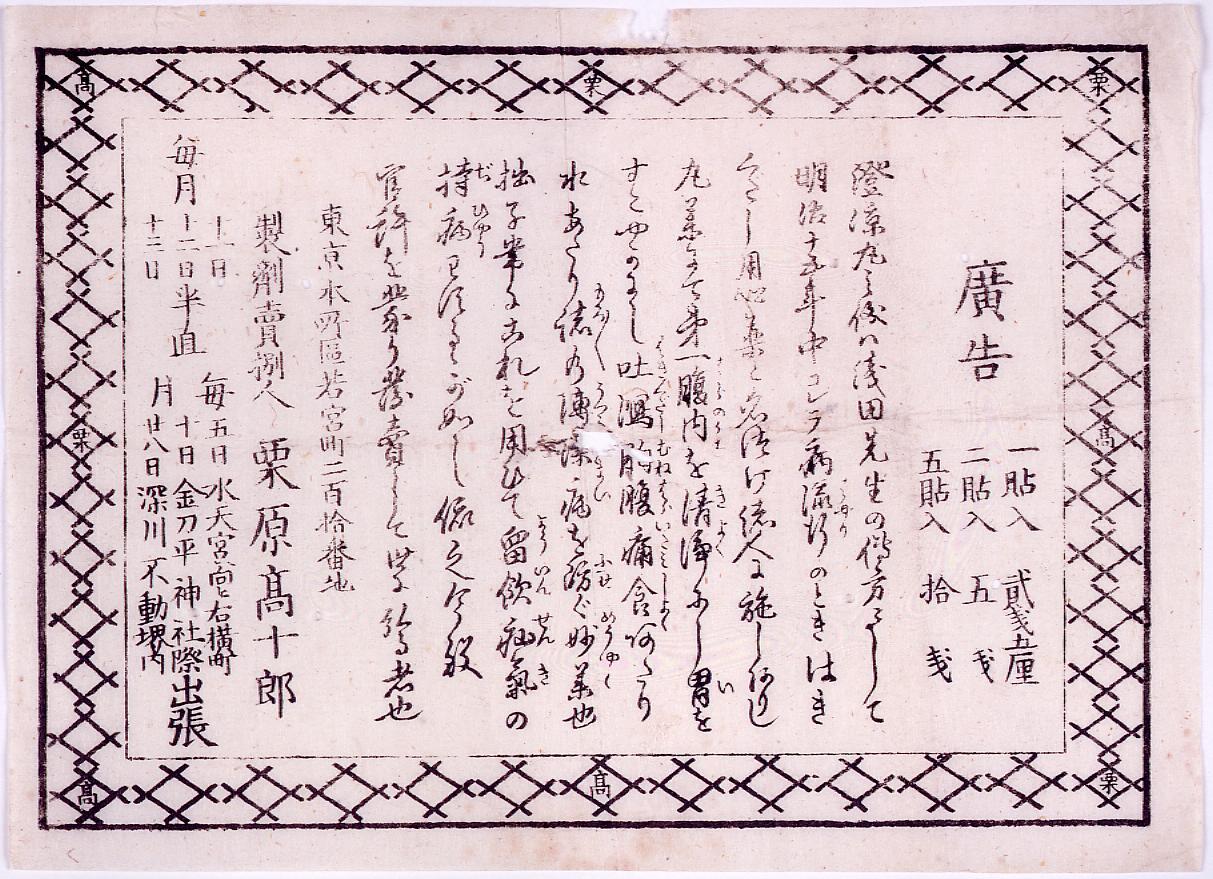 廣告
一貼入 貳戔五厘
二貼入 五戔
五貼入 拾戔
澄凉丸之儀ハ浅田先生の備方にして
明治十五年中コレラ病流行のときはき
くだし用心薬と名付け諸人に施しありし
丸薬にて第一腹内を清浄にし胃を
すこやかにし吐瀉胸腹痛食あたり
水あたり諸の傳染病を防ぐ妙薬也
拙子常にこれを用ひて留飲疝氣の
持病
官許を蒙り發賣して世に弘る者也
東京本所區若宮町二百拾番地
製劑賣捌人 栗原髙十郎
毎月 十一日 十二日 十三日 半直
毎月 五日 水天宮筒と右横町
十日 金刀平神社際
廿八日 深川不動堺内
出張
髙 栗 栗
栗 髙
髙 髙 栗